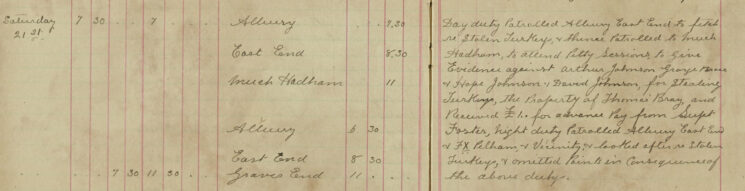 Saturday 7 30 . . 7 . . Albury . . 8.30 Day duty Patrolled Albury East End to fetch
21st. re Stolen Turkeys, & thence Patrolled to Much
East End 8.30 Hadham, to attend Petty Sessions, to Give
Evidence against Arthur Johnson George
Much Hadham 11 & Hope Johnson & David Johnson, for Stealing
Turkeys, the Property of Thomas Bray, and
Received £ for advance Pay from Supt
Albury 6 30 Foster, Night duty Patrolled Albury East End
& FX Pelham, & Vicinity, & looked after re Stolen
East End 8 30 Turkeys, & omitted Points in Consequence of
7 30 11 30 . . Graves End 11 . . the above duty.